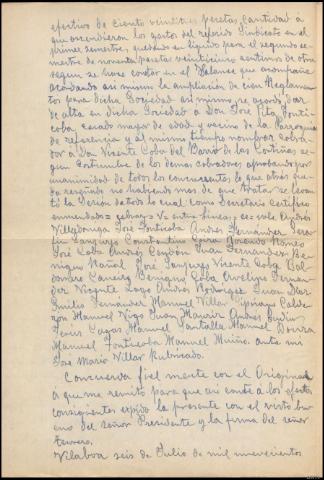 efectivo de ciento veintitres pesetas, cantidad á
que ascendieron los gastos del referido Sindicato en el
primer semestre, quedando en líquido para el segundo se-
mestre de noventa pesetas veinticinco centimos de otra
segun se hace constar en el Balance que acompaña
acordando asi mismo la ampliación de cien Reglamen-
tos para dicha Sociedad asi mismo se acordó dar
de alta en dicha Sociedad a Don José Pita Fonti-
coba, casado mayor de edad y vecino de la Parroquia
de referencia y al mismo tiempo nombrar cobra-
dor a Don Vicente Coba del Barro de las Cortiñas se-
gun costumbre de los demas cobradores aprobando por
unanimidad de todos los concurrentes lo que atrás que-
da reseñado no habiendo mas de que tratar se levan-
tó la Sesión de todo lo cual como Secretario Certifico
enmendado = = V = entre lineas, = es = vale Andrés
Villadonga José Fonticoba Andrés Fernández Sera-
fin Sanjurjo Constantino Ramós
José Coba Andrés Juan Fernández Be-
nigno José Sanjurjo Vicente Coba Bal-
domero Benigno Coba Avelino Fernan-
dez Vicente Lago Andrés Rodriguez Juan
Emilio Fernández Manuel Villar Cipriano Calde-
ron Manuel Vigo Juan Andrés
Jesús Manuel Santalla Manuel
Manuel Fonticoba Manuel Muiño. ante mi
José Mario Villar Rubricado.
Concuerda fiel mente con el Original
a que me remito para que asi conste á los efectos
consiguientes expido la presente con el visto bu-
eno del señor Presidente y la firma del señor
Tesorero.
Vilaboa seis de Julio de mil novecientos